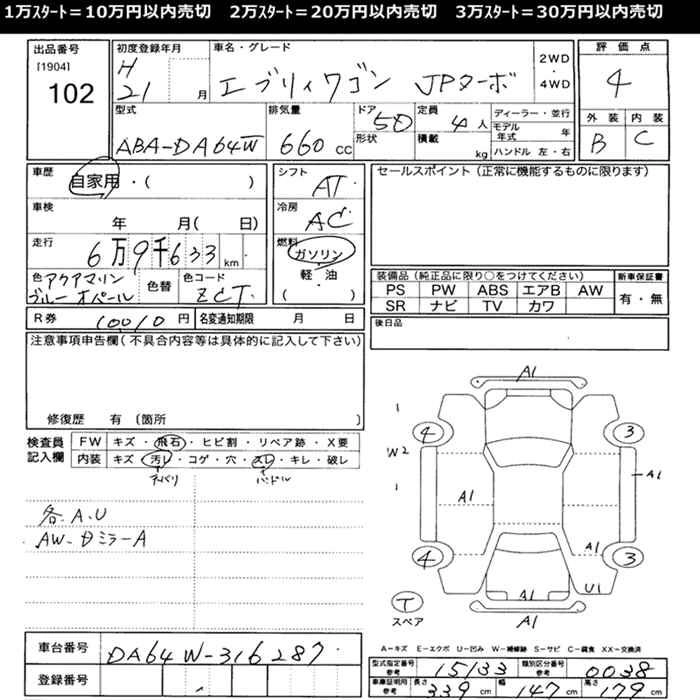 1万スタート＝10万円以内売切　2万スタート＝20万円以内売切　3万スタート＝30万円以内売切
出品番号
[1904]
102
初度登録年月
H
21 月
車名・グレード
エブリィワゴン JPターボ
2WD
・
4WD
評価点
4
型式
ABA-DA64W
排気量
660 CC
ドア
5D
形状
定員
4人
積載
kg
ディーラー・並行
モデル年式 年
ハンドル 左・右
外装 内装
B C
車歴
自家用・( )
車検
年 月( 日)
走行
6万9千633km
色 アクアマリン
ブルーオパール
色替
色コード
ZCT
シフト
AT
冷房
AC
燃料
ガソリン
軽・油
( )
セールスポイント(正常に機能するものに限ります)
装備品(純正品に限り○をつけてください)
PS PW ABS エアB AW
SR ナビ TV カワ
新車保証書
有・無
R券 10010円
名変通知期限 月 日
後日品
注意事項申告欄(不具合内容等は具体的に記入して下さい)
修復歴 有 (箇所 )
検査員
記入欄
FW キズ・飛石・ヒビ割・リペア跡・X要
内装 キズ・汚レ・コゲ・穴・スレ・キレ・破レ
ネバリ ハンドル
各.A.U
AW-Dミラ-A
A1
1
4
3
W2
1
A1
A1
4
3
A1
U1
A1
A1
T
スペア
A-キズ E-エクボ U-凹み W-補修跡 S-サビ C-腐食 XX-交換済
車台番号
DA64W-316287
登録番号
型式指定番号
参考
15133
類別区分番号
参考
0038
車庫証明用
参考
長さ 339cm 幅 147cm 高さ 179cm